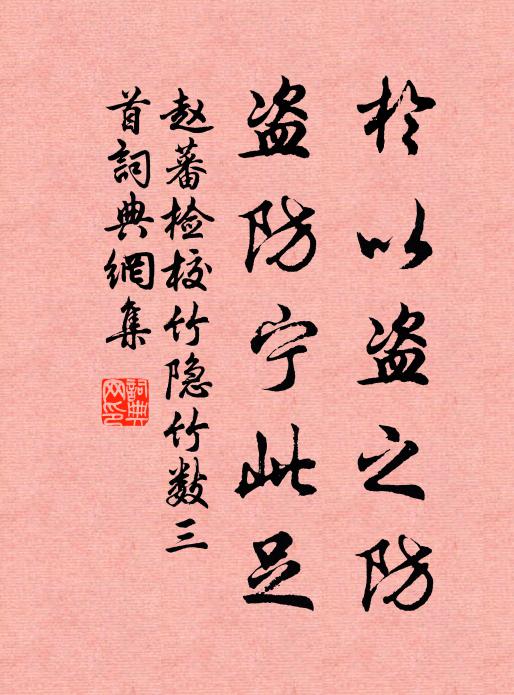 於以盗之防
盗防宁此足
赵蕃检校竹隐竹数三
首詞典網集
詞典网印